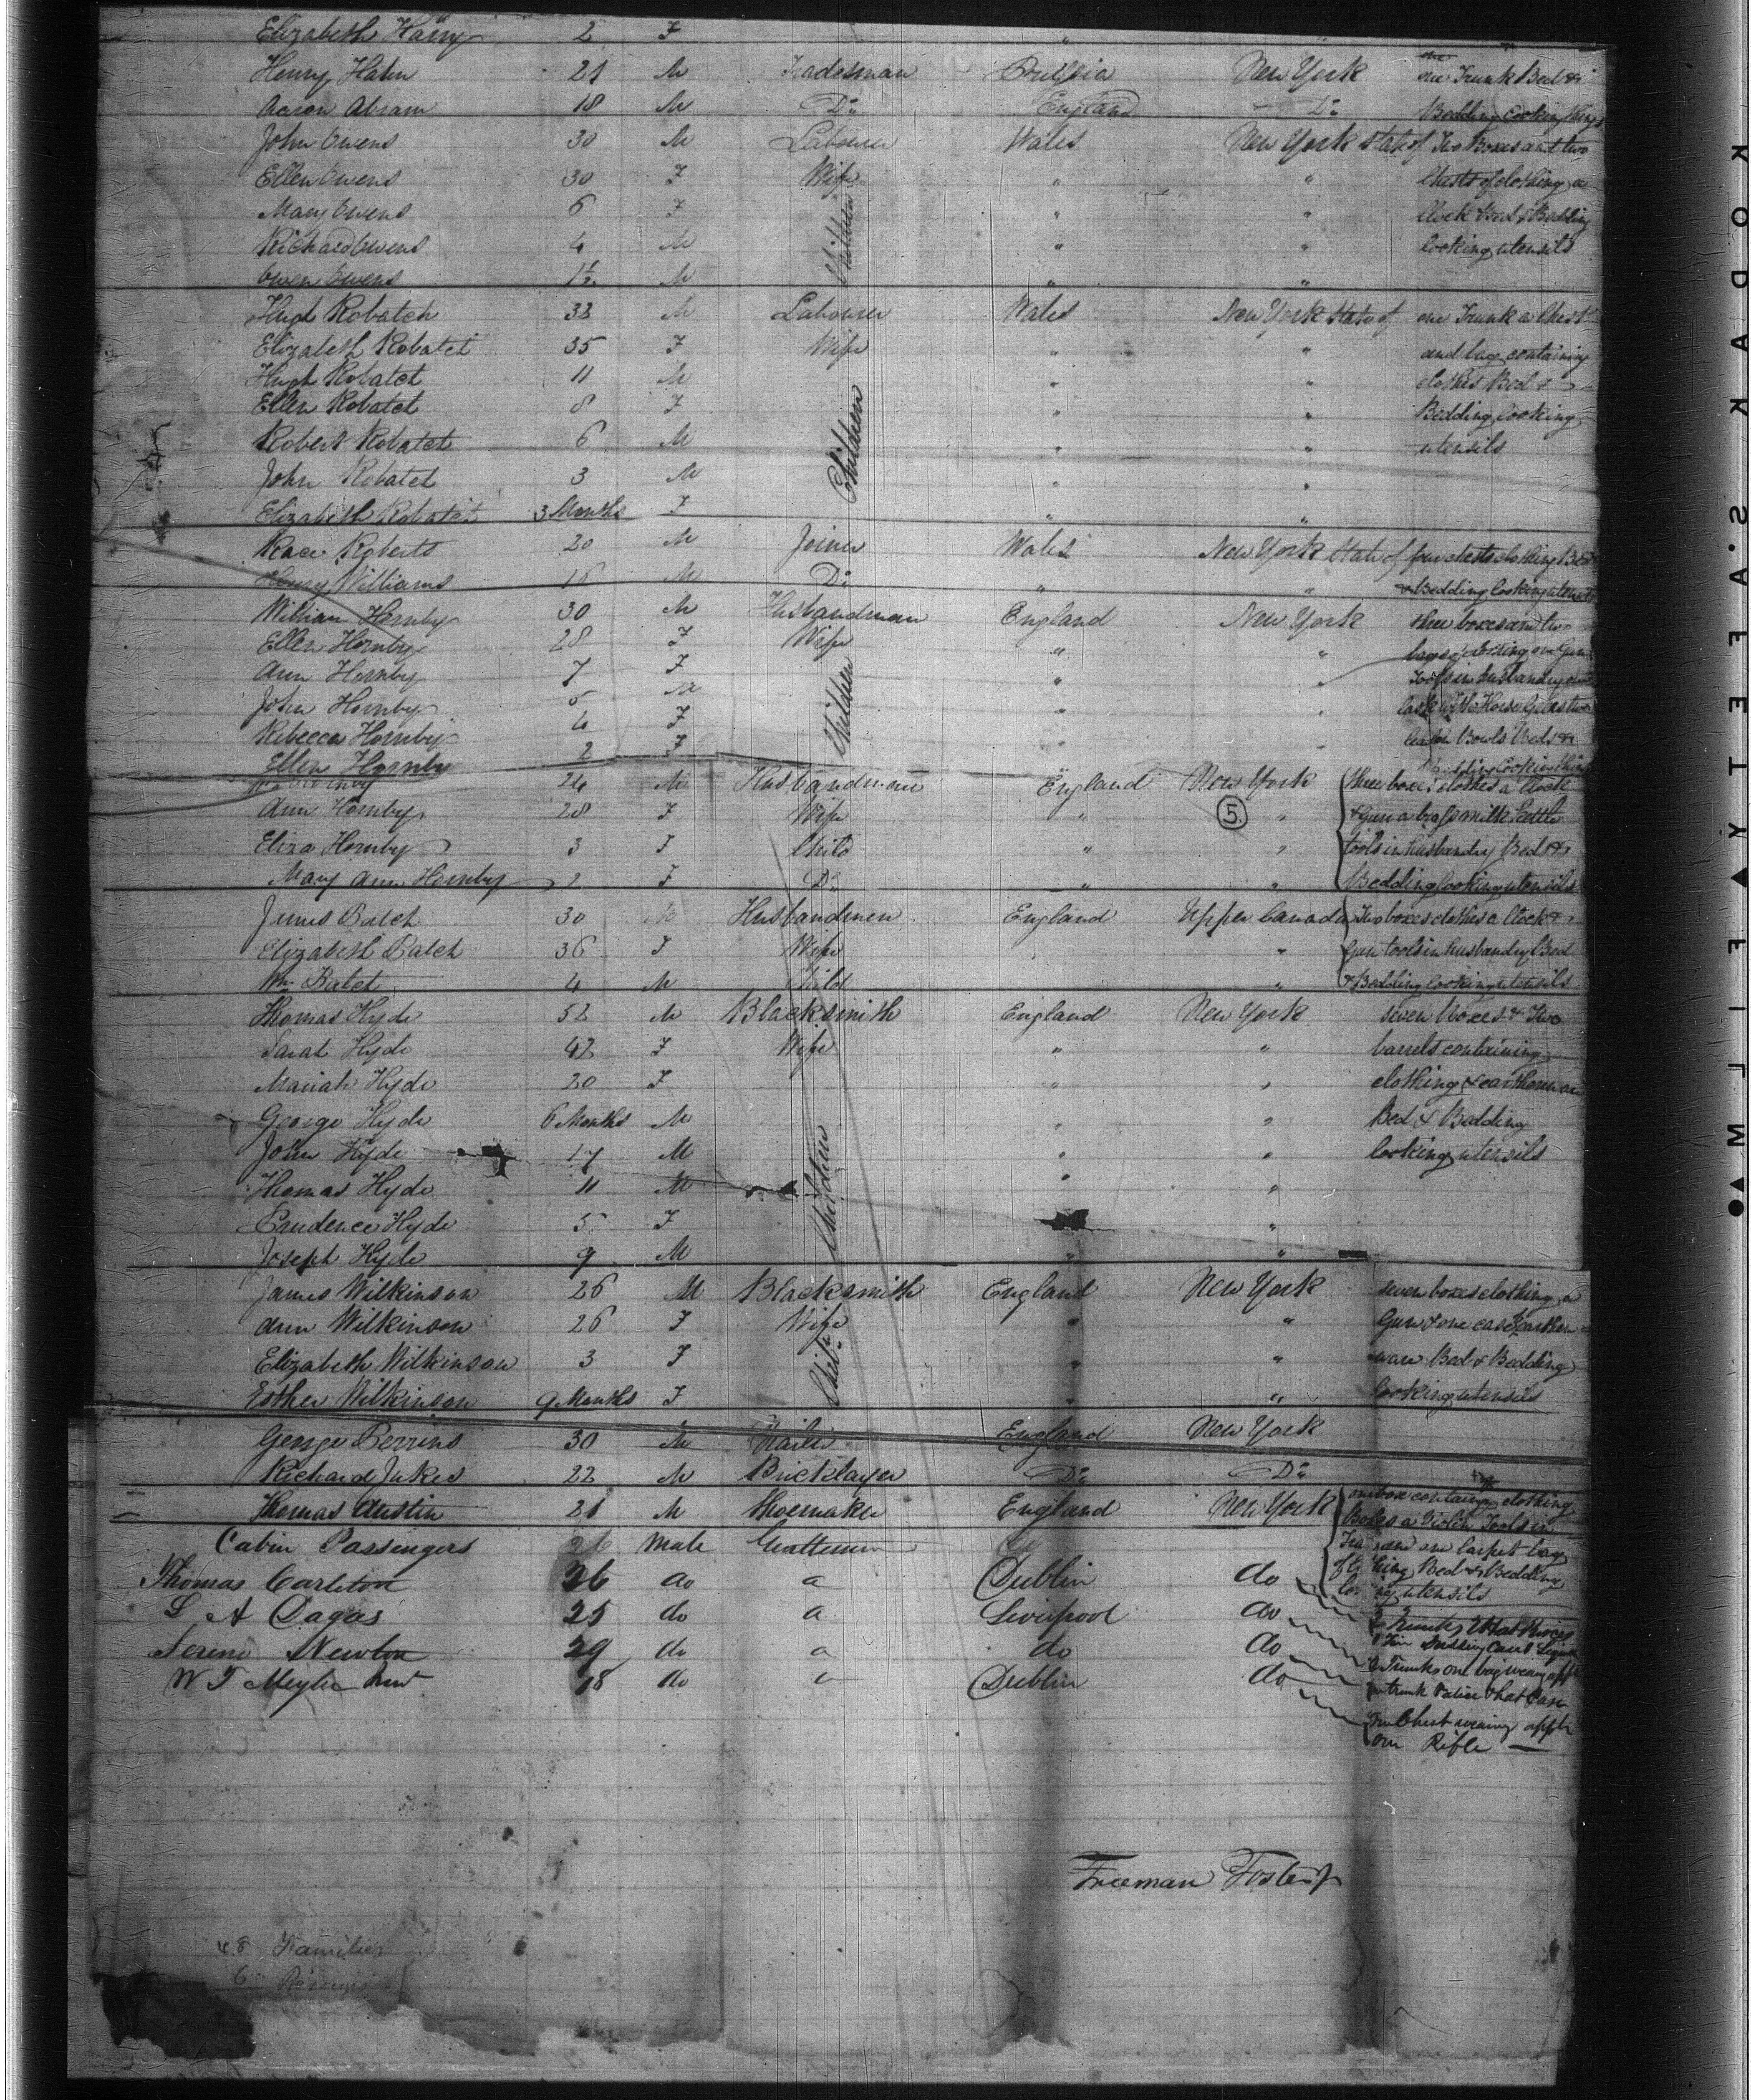 Elizabeth Harry 2 F " "
Henry Hahn 21 M Tradesman Prussia New York one Trunk Bed &
Aaron Abram 18 M Do England Do Bedding Cooking things
John Owens 30 M Labourer Wales New York State of Two Boxes and two
Ellen Owens 30 F Wife " " Chests of clothing a
Mary Owens 6 F Children " " Clock Bed & Bedding
Richard Owens 4 M " " Cooking utensils
Owen Owens 1½ M " "
Hugh Robatch 33 M Labourer Wales New York State of one Trunk a Chest
Elizabeth Robatch 35 F Wife " " and bag containing
Hugh Robatch 11 M " " clothes Bed &
Ellen Robatch 8 F Children " " Bedding Cooking
Robert Robatch 6 M " " utensils
John Robatch 3 M " "
Elizabeth Robatch 3 Months F " "
Roberts 20 M Joiner Wales New York State of four chests clothing Bed
Henry Williams 16 M Do " " & Bedding Cooking utensils
William Hornby 30 M Husbandman England New York three boxes and two
Ellen Hornby 28 F Wife " " bags of clothing one Gun
Ann Hornby 7 F Children " " Tools in husbandry one
John Hornby 5 M " "
Rebecca Hornby 4 F " " Bowls Bed &
Ellen Hornby 2 F Cooking
Hornby 24 M Husbandman England New York three boxes clothes a Clock
Ann Hornby 28 F Wife " 5. " & Gun a brass milk kettle
Eliza Hornby 3 F Child " " tools in husbandry Bed &
Mary Ann Hornby 2 F Do " " Bedding Cooking utensils
James Balch 30 M Husbandmen England Upper Canada Two boxes clothes a Clock &
Elizabeth Balch 36 F Wife " Gun tools in husbandry Bed
Wm Balch 4 M Child " & Bedding Cooking utensils
Thomas Hyde 52 M Blacksmith England New York seven boxes & Two
Sarah Hyde 42 F Wife " " barrels containing
Mariah Hyde 20 F " " clothing & earthenware
George Hyde 6 Months M " " Bed & Bedding
John Hyde 17 M Children " " Cooking utensils
Thomas Hyde 11 M " "
Prudence Hyde 5 F "
Joseph Hyde 9 M " "
James Wilkinson 26 M Blacksmith England New York seven boxes clothing a
Ann Wilkinson 26 F Wife " " Gun & one cask earthen
Elizabeth Wilkinson 3 F Child " " ware Bed & Bedding
Esther Wilkinson 9 Months F " " Cooking utensils
George Perrins 30 M Nailer England New York
Richard Jukes 22 M Bricklayer Do Do
Thomas Austin 21 M Shoemaker England New York one box containing clothing
Cabin Passengers 26 Male Gentlemen Boxes a Violin Tools in
one carpet bag
Thomas Carleton 26 do a Dublin do Bed & Bedding
utensils
S A Dagas 25 do a Liverpool do Trunks
Sereno Newton 29 do a do do Trunks one bag wearing app
W T Meyler 18 do Dublin do trunk Valise & hat Case
Chest wearing app
one Rifle
Freeman Foster Jr
48 Families
6
KODAK S.A.F.E.T.Y FILM